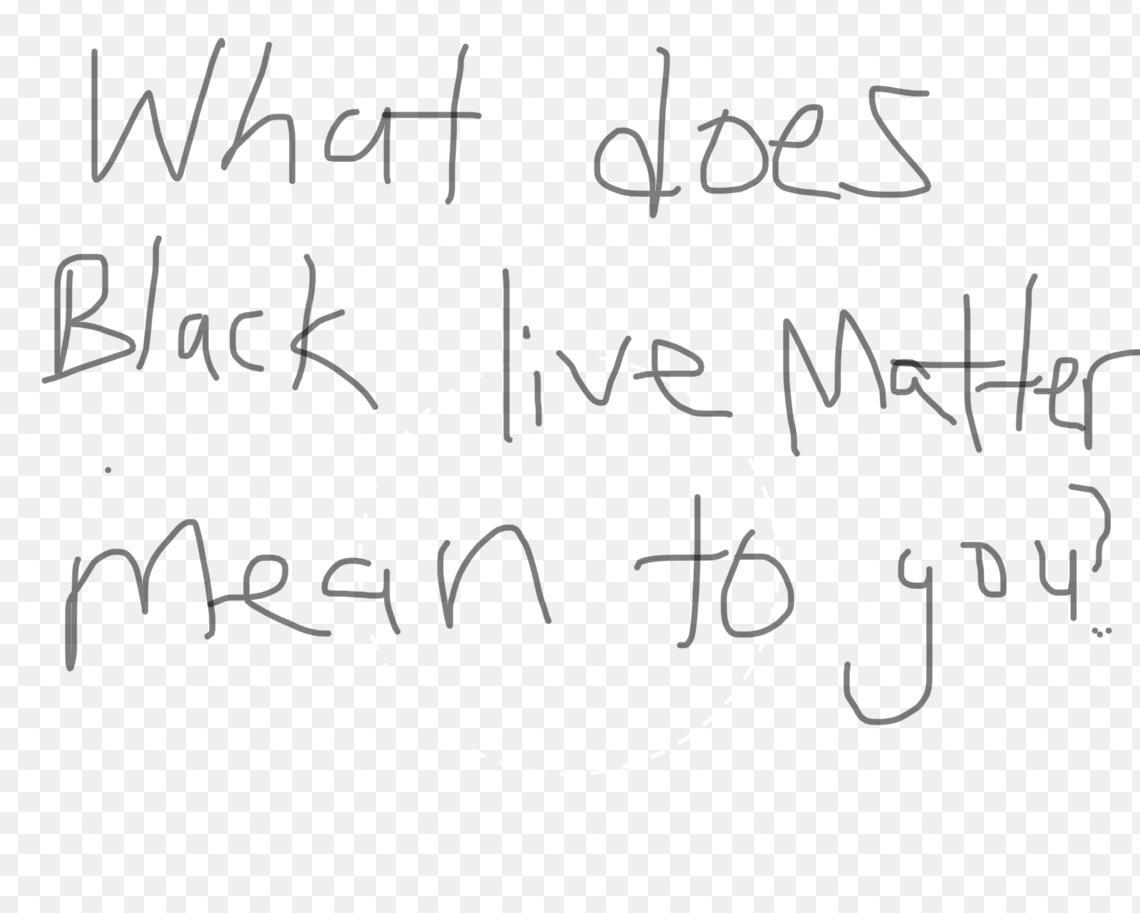 What does
Black live Matter
mean to you?